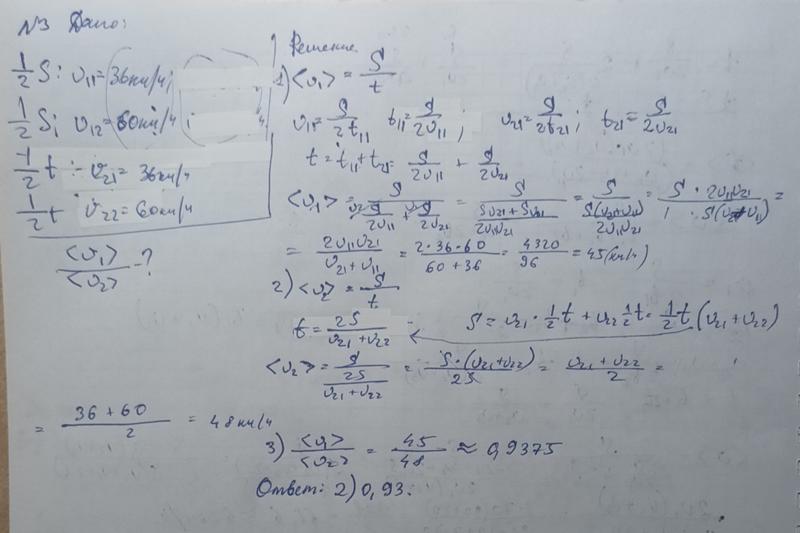 №3 Дано:
1/2 S: v₁₁ = 36км/ч;
1/2 S; v₁₂ = 60км/ч
1/2 t: - v₂₁ = 36км/ч
1/2 t v₂₂ = 60км/ч
<v₁>/<v₂> - ?
Решение
1) <v₁> = S/t
v₁₁ = S/2t₁₁ t₁₁ = S/2v₁₁; v₂₁ = S/2t₂₁; t₂₁ = S/2v₂₁
t = t₁₁ + t₂₁ = S/2v₁₁ + S/2v₂₁
<v₁> = S/(S/2v₁₁ + S/2v₂₁) = S/((Sv₂₁ + Sv₁₁)/2v₁₁v₂₁) = S/(S(v₂₁+v₁₁)/2v₁₁v₂₁) = S · 2v₁₁v₂₁/1 · S(v₂₁+v₁₁) =
= 2v₁₁v₂₁/(v₂₁ + v₁₁) = 2·36·60/(60 + 36) = 4320/96 = 45(км/ч)
2) <v₂> = S/t
t = 2S/(v₂₁ + v₂₂) S = v₂₁ · 1/2 t + v₂₂ 1/2 t = 1/2 t (v₂₁ + v₂₂)
<v₂> = S/(2S/(v₂₁ + v₂₂)) = S·(v₂₁+v₂₂)/2S = (v₂₁ + v₂₂)/2 =
= (36 + 60)/2 = 48км/ч
3) <v₁>/<v₂> = 45/48 ≈ 0,9375
Ответ: 2) 0,93.